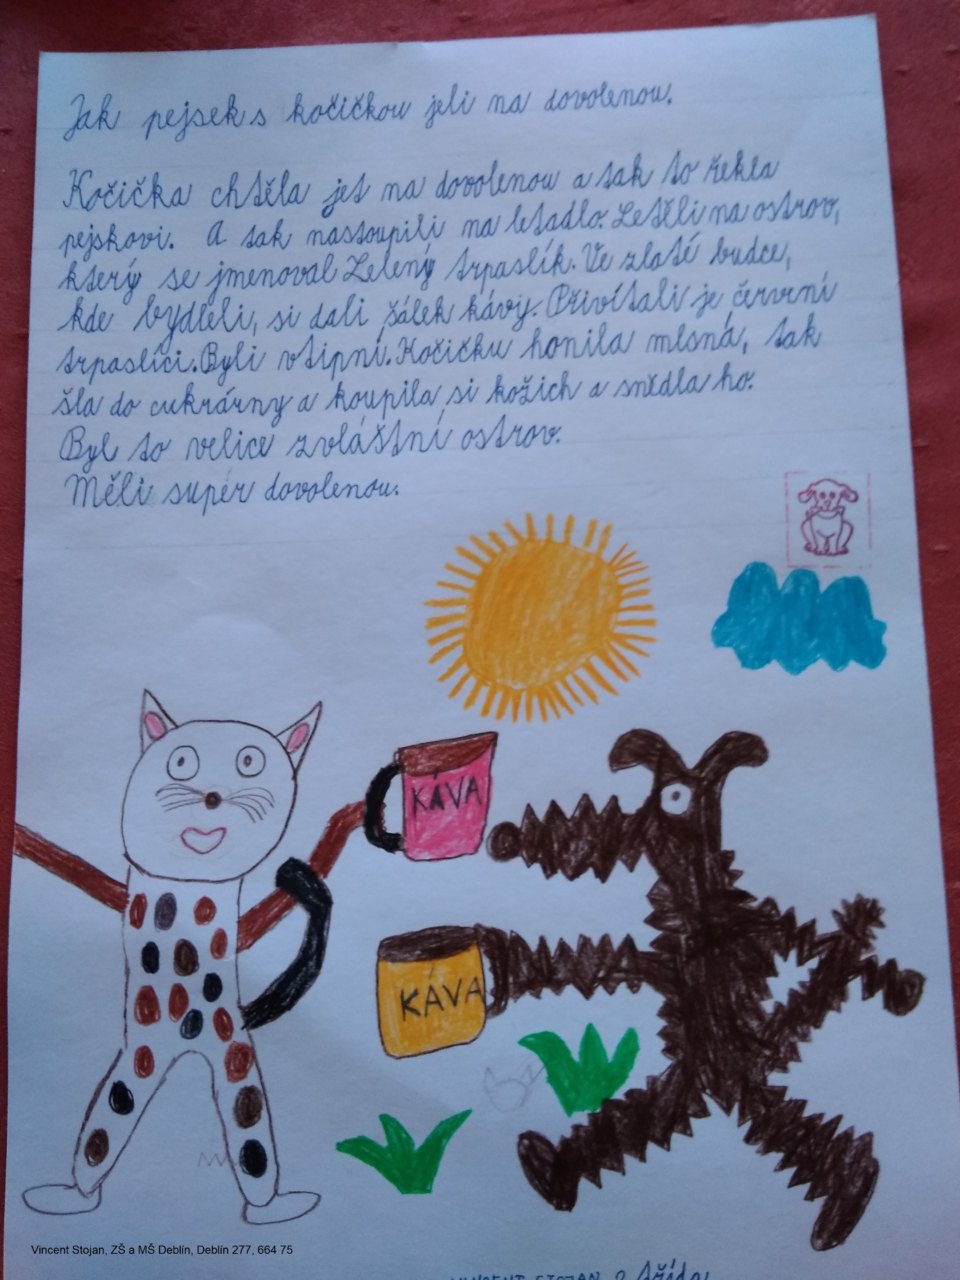 Jak pejsek s kočičkou jeli na dovolenou.
Kočička chtěla jet na dovolenou a tak to řekla
pejskovi. A tak nastoupili na letadlo. Letěli na ostrov,
který se jmenoval Zelený trpaslík. Ve zlaté budce,
kde bydleli, si dali šálek kávy. Přivítali je červení
trpaslíci. Byli vtipní. Kočičku honila mlsná, tak
šla do cukrárny a koupila si kožich a snědla ho.
Byl to velice zvláštní ostrov.
Měli super dovolenou.
KÁVA
KÁVA
Vincent Stojan, ZŠ a MŠ Deblín, Deblín 277, 664 75
VINCENT STOJAN 2. třída